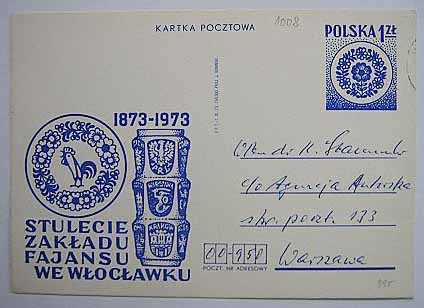 1008
KARTKA POCZTOWA
POLSKA 1 ZŁ
1873-1973
WARSZAWA
KRAKÓW
STULECIE
ZAKŁADU
FAJANSU
WE WŁOCŁAWKU
c/o Agencja Autorska
skr. poczt. 133
00-950
Warszawa
POCZT. NR ADRESOWY
995